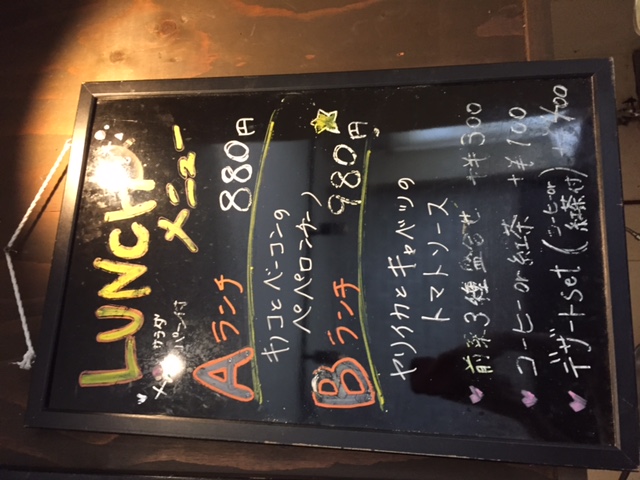 LUNCH
メニュー
サラダ
パン付
Aランチ 880円
キノコとベーコンの
ペペロンチーノ
Bランチ 980円
ヤリイカとキャベツの
トマトソース
前菜3種盛合せ +¥300
コーヒーor紅茶 +¥100
デザートset(コーヒーor紅茶付)